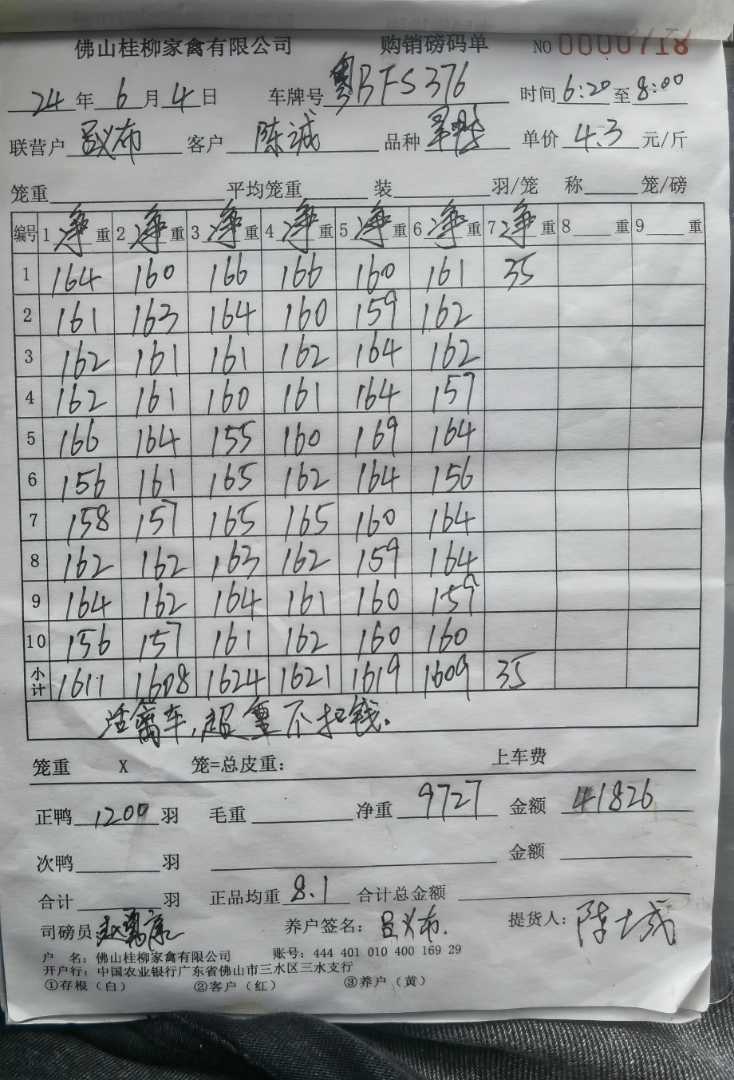 佛山桂柳家禽有限公司 购销磅码单 NO 0000718
24年6月4日 车牌号 粤BFS376 时间 6:20 至 8:00
联营户 吕义布 客户 陈诚 品种 单价 4.3 元/斤
笼重 平均笼重 装 羽/笼 称 笼/磅
编号 1 净重 2 净重 3 净重 4 净重 5 净重 6 净重 7 净重 8 重 9 重
1 164 160 166 166 160 161 35
2 161 163 164 160 159 162
3 162 161 161 162 164 162
4 162 161 160 161 164 157
5 166 164 155 160 169 164
6 156 161 165 162 164 156
7 158 157 165 165 160 164
8 162 162 163 162 159 164
9 164 162 164 161 160 159
10 156 157 161 162 160 160
小计 1611 1608 1624 1621 1619 1609 35
活禽车,超重不扣钱.
笼重 X 笼=总皮重: 上车费
正鸭 1200 羽 毛重 净重 9727 金额 41826
次鸭 羽 金额
合计 羽 正品均重 8.1 合计总金额
司磅员 养户签名: 吕义布. 提货人:
户 名: 佛山桂柳家禽有限公司 账号: 444 401 010 400 169 29
开户行: 中国农业银行广东省佛山市三水区三水支行
①存根(白) ②客户(红) ③养户(黄)